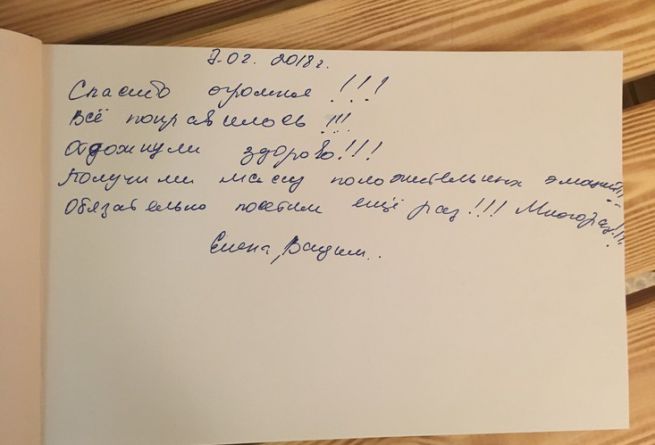 7.02. 2018г.
Спасибо огромное!!!
Всё понравилось!!!
Отдохнули здорово!!!
Получили массу положительных эмоций!!
Обязательно посетим ещё раз!!! Много раз!!!
Елена, Вадим..